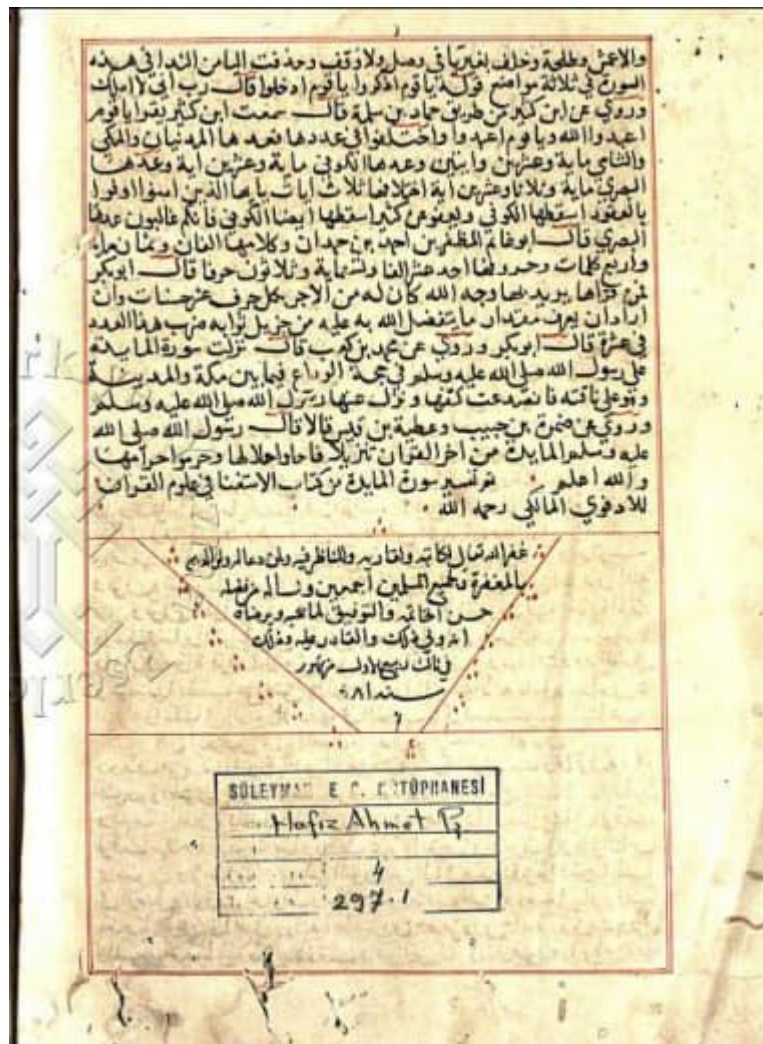 والاعمش وطلحة وخلف بغير يا في وصل ولا وقف وحذفت اليا من الندا في هذه
السورة في ثلاثة مواضع قوله يا قوم اذكروا يا قوم ادخلوا قال رب اني لا املك
وروي عن ابن كثير من طريق حماد بن سلمة قال سمعت ابن كثير يقرا يا قوم
اعبدوا الله ويا قوم اعبدوا واختلفوا في عددها فعدها المدنيان والمكي
والشامي ماية وعشرين واثنين وعدها الكوفي ماية وعشرين اية وعدها
البصري ماية وثلاثا وعشرين اية اختلافها ثلاث ايات يايها الذين امنوا اوفوا
بالعقود اسقطها الكوفي ويعفوا عن كثير اسقطها ايضا الكوفي فانكم غالبون عدها
البصري قال ابو غانم المظفر بن احمد بن حمدان وكلامها الفان وثمان ماية
واربع كلمات وحروفها احد عشر الفا وتسعماية وثلاثون حرفا قال ابو بكر
فمن قراها يريد بها وجه الله كان له من الاجر بكل حرف عشر حسنات وان
اراد ان يعرف مقدار ما يتفضل الله به عليه من جزيل ثوابه ضرب هذا العدد
في عشرة قال ابو بكر وروي عن محمد بن كعب قال نزلت سورة المايدة
على رسول الله صلى الله عليه وسلم في حجة الوداع فيما بين مكة والمدينة
وهو على ناقته فانصدعت كتفها ونزل عنها رسول الله صلى الله عليه وسلم
وروي عن ضمرة بن حبيب وعطية بن قيس قالا قال رسول الله صلى الله
عليه وسلم المايدة من اخر القران تنزيلا فاحلوا حلالها وحرموا حرامها
والله اعلم تم تفسير سورة المايدة من كتاب الاستغنا في علوم القران
للادفوي المالكي رحمه الله
غفر الله تعالى لكاتبه ولقاريه وللناظر فيه ولمن دعا له ولوالديهم
بالمغفرة ولجميع المسلمين اجمعين ونساله من فضله
حسن الخاتمة والتوفيق لما يحبه ويرضاه
انه ولي ذلك والقادر عليه وذلك
في ثالث ربيع الاول من شهور
سنة
SÜLEYMANİYE G. KÜTÜPHANESİ
Hafız Ahmet Pş
4
297.1